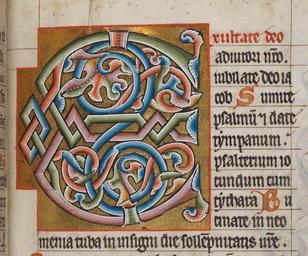 Exultate deo
adiutori nr̄o.
iubilate deo ia
cob Sumite
psalmū ⁊ date
tympanum.
psalterium io
cundum cum
cythara Bu
cinate in neo
menia tuba in insigni die sollepnitatis ur̄e.